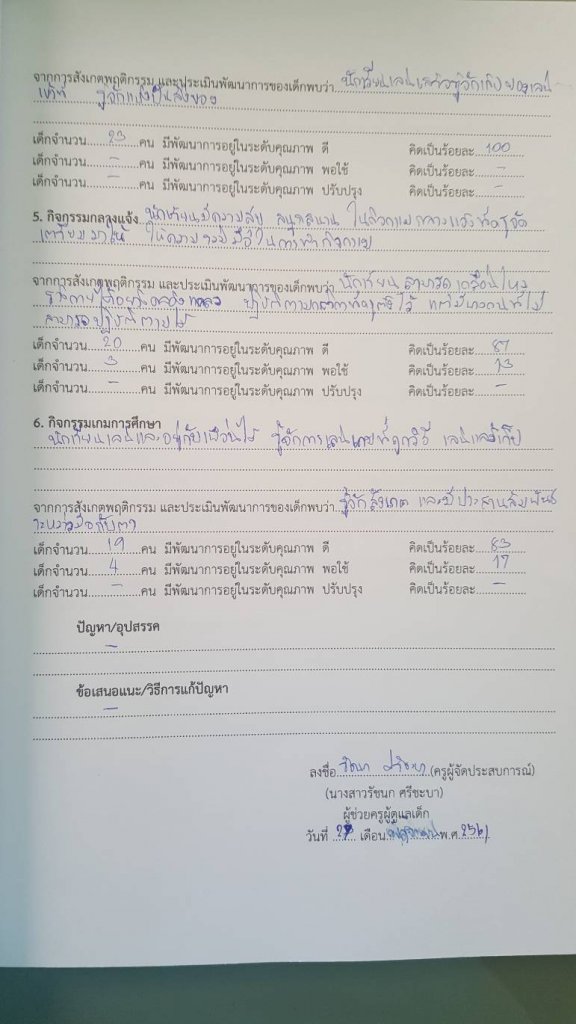 จากการสังเกตพฤติกรรม และประเมินพัฒนาการของเด็กพบว่า นักเรียนเล่นแล้วรู้จักเก็บของเล่น
เข้าที่ รู้จักแบ่งปันสิ่งของ
เด็กจำนวน 23 คน มีพัฒนาการอยู่ในระดับคุณภาพ ดี คิดเป็นร้อยละ 100
เด็กจำนวน - คน มีพัฒนาการอยู่ในระดับคุณภาพ พอใช้ คิดเป็นร้อยละ -
เด็กจำนวน - คน มีพัฒนาการอยู่ในระดับคุณภาพ ปรับปรุง คิดเป็นร้อยละ -
5. กิจกรรมกลางแจ้ง นักเรียนมีความสุข สนุกสนาน ในกิจกรรมกลางแจ้งที่ครูจัด
เตรียมมาให้ ให้ความร่วมมือในการทำกิจกรรม
จากการสังเกตพฤติกรรม และประเมินพัฒนาการของเด็กพบว่า นักเรียนสามารถเคลื่อนไหว
ร่างกายได้อย่างคล่องแคล่ว ปฏิบัติตามกติกาที่ครูตั้งไว้ แต่มีบางคนที่ไม่
สามารถปฏิบัติตามได้
เด็กจำนวน 20 คน มีพัฒนาการอยู่ในระดับคุณภาพ ดี คิดเป็นร้อยละ 87
เด็กจำนวน 3 คน มีพัฒนาการอยู่ในระดับคุณภาพ พอใช้ คิดเป็นร้อยละ 13
เด็กจำนวน - คน มีพัฒนาการอยู่ในระดับคุณภาพ ปรับปรุง คิดเป็นร้อยละ -
6. กิจกรรมเกมการศึกษา
นักเรียนเล่นและอยู่กับเพื่อนได้ รู้จักการเล่นเกมที่ถูกวิธี เล่นแล้วเก็บ
จากการสังเกตพฤติกรรม และประเมินพัฒนาการของเด็กพบว่า รู้จักสังเกต และมีประสานสัมพันธ์
ระหว่างมือกับตา
เด็กจำนวน 19 คน มีพัฒนาการอยู่ในระดับคุณภาพ ดี คิดเป็นร้อยละ 83
เด็กจำนวน 4 คน มีพัฒนาการอยู่ในระดับคุณภาพ พอใช้ คิดเป็นร้อยละ 17
เด็กจำนวน - คน มีพัฒนาการอยู่ในระดับคุณภาพ ปรับปรุง คิดเป็นร้อยละ -
ปัญหา/อุปสรรค
-
ข้อเสนอแนะ/วิธีการแก้ปัญหา
-
ลงชื่อ (ครูผู้จัดประสบการณ์)
(นางสาวรัชนก ศรีชะบา)
ผู้ช่วยครูผู้ดูแลเด็ก
วันที่ เดือน พ.ศ. 2561